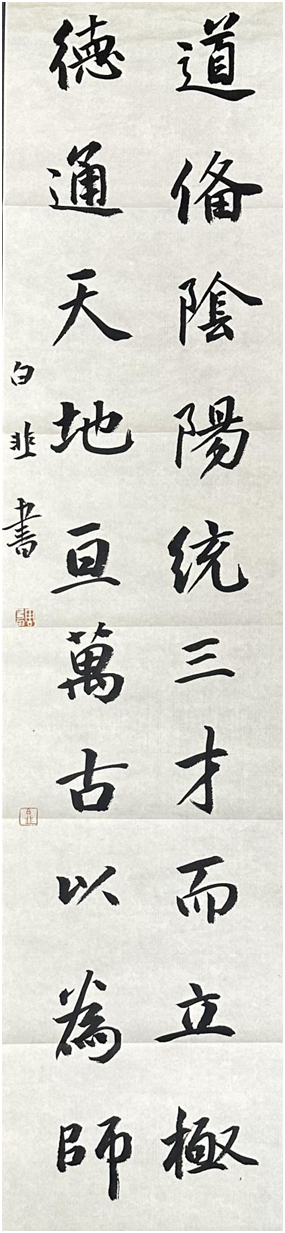 道備陰陽統三才而立極
德通天地亘萬古以為師
白韭書